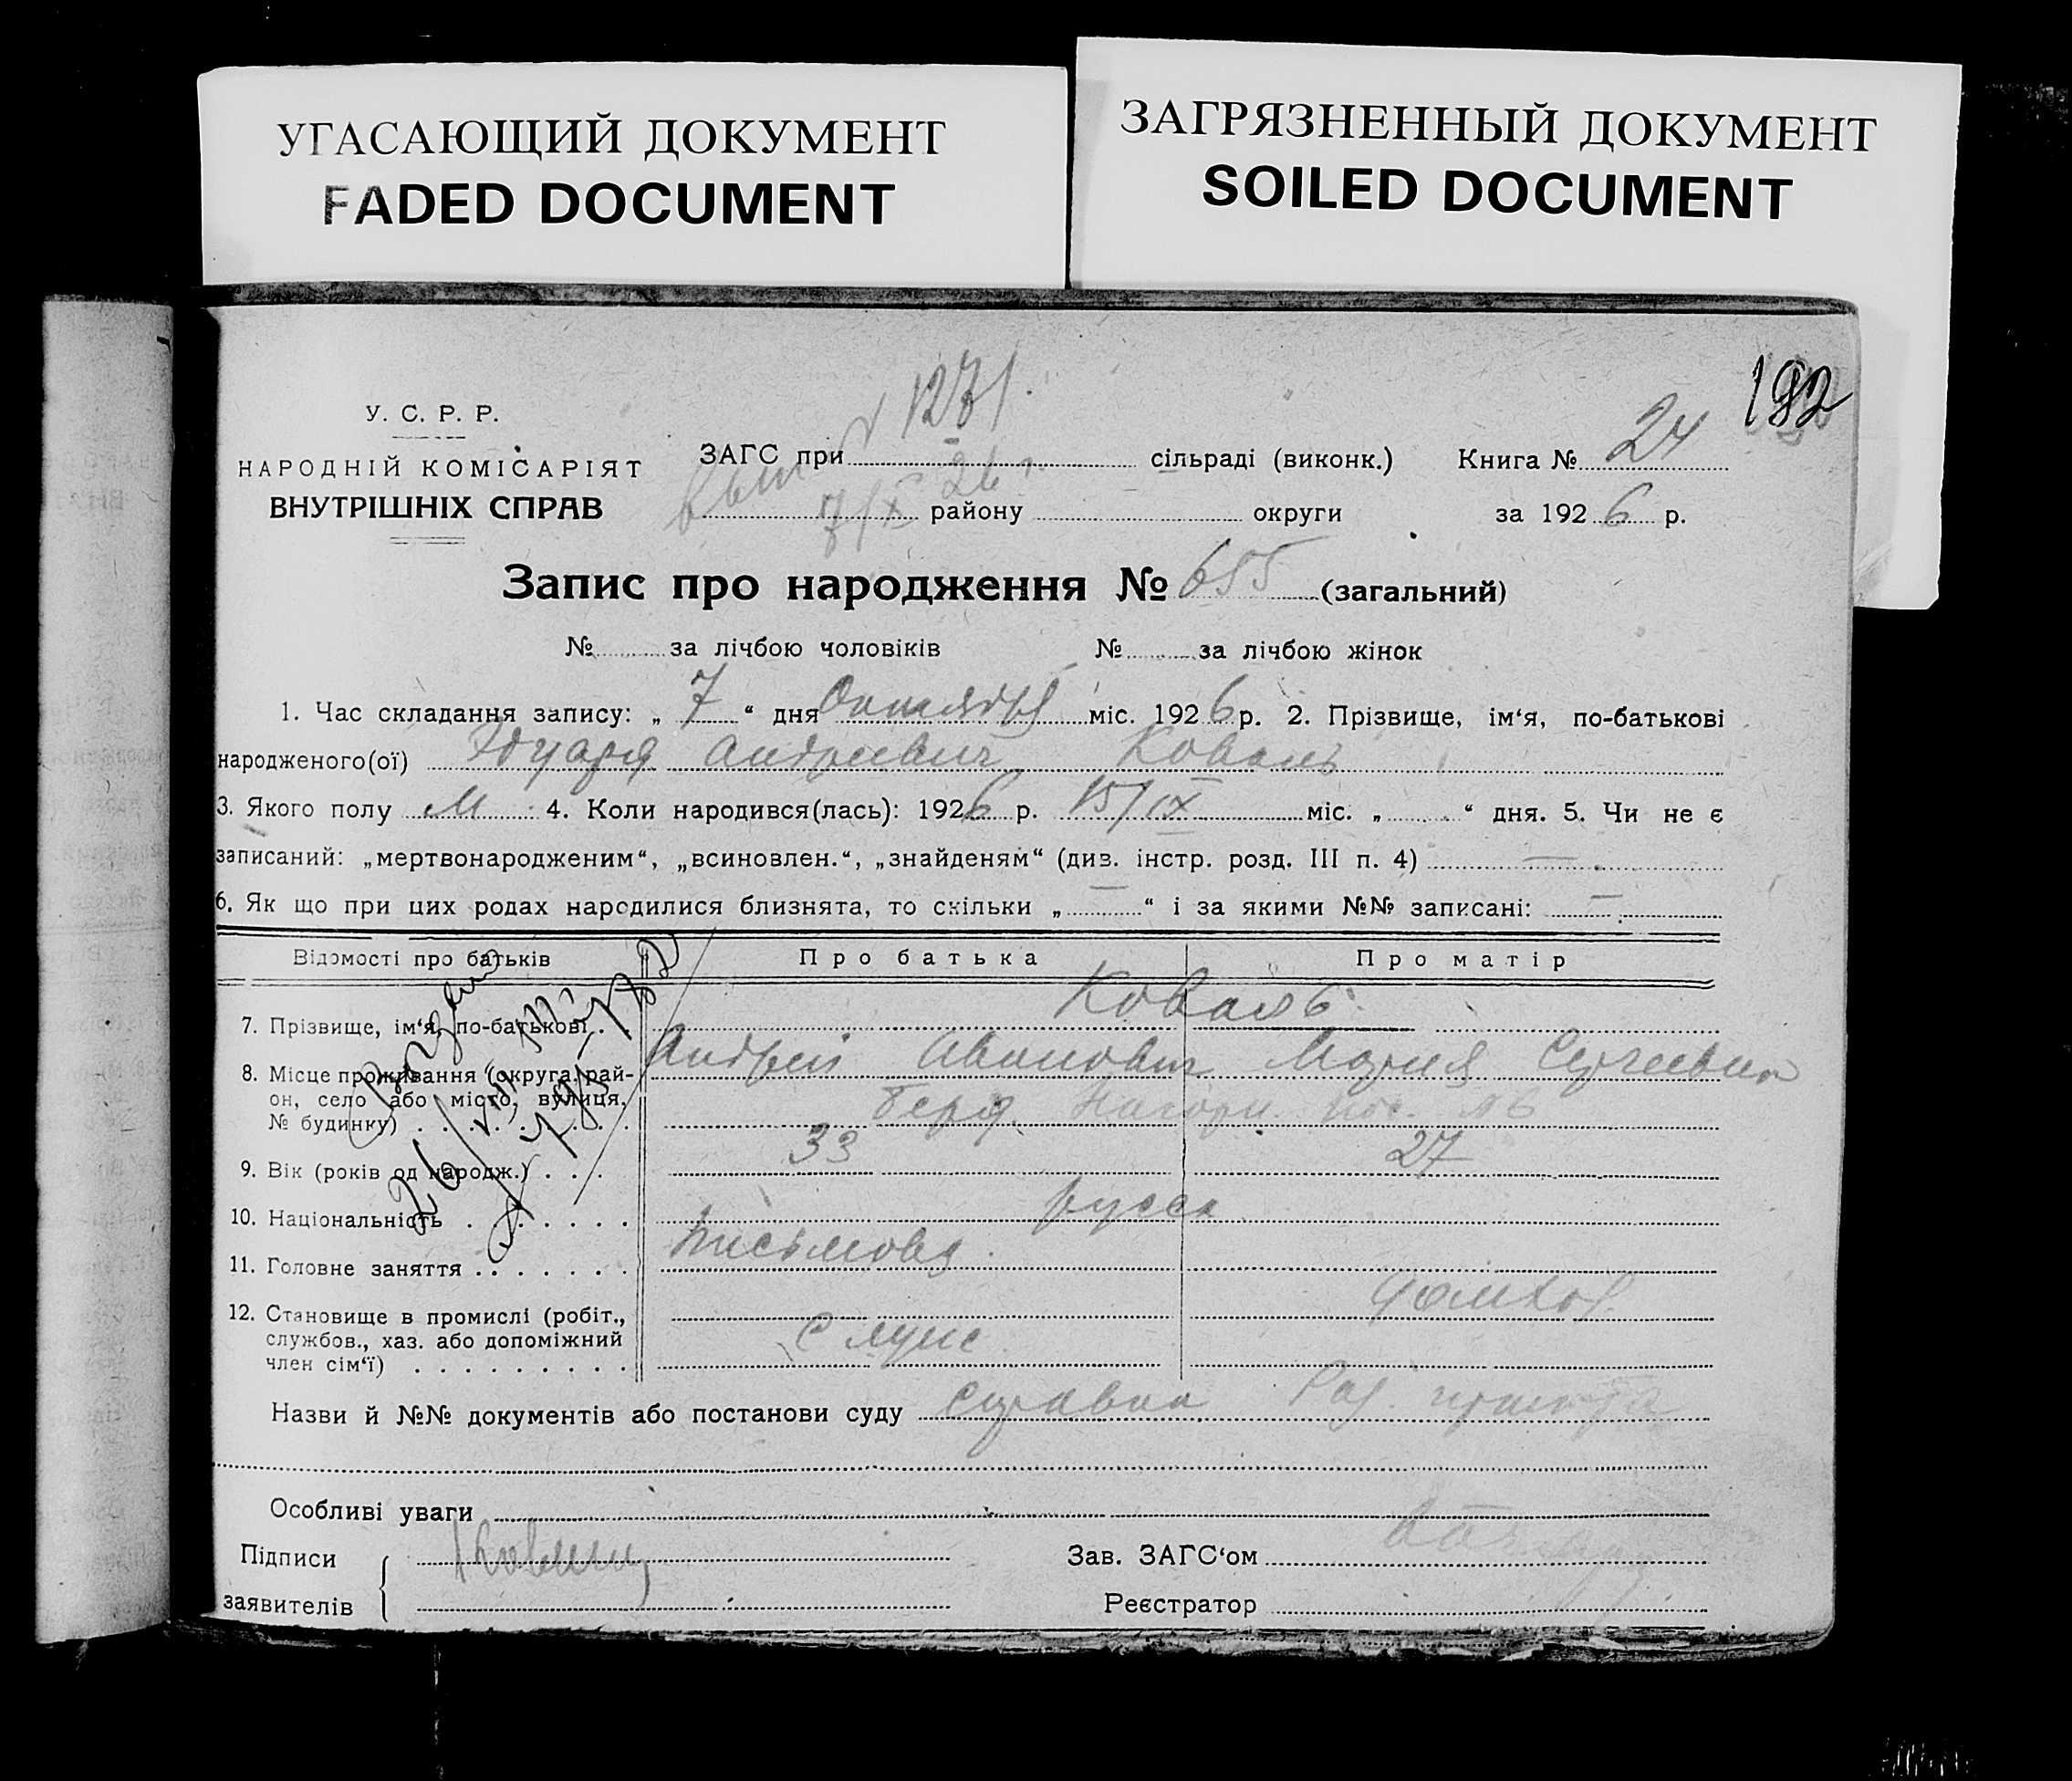 УГАСАЮЩИЙ ДОКУМЕНТ
FADED DOCUMENT
ЗАГРЯЗНЕННЫЙ ДОКУМЕНТ
SOILED DOCUMENT
192
У. С. Р. Р.
НАРОДНІЙ КОМІСАРІЯТ
ВНУТРІШНІХ СПРАВ
1271
ЗАГС при сільраді (виконк.) Книга № 24
вып 7/X 26 г. району округи за 1926 р.
Запис про народження № 655 (загальний)
№ за лічбою чоловіків № за лічбою жінок
1. Час складання запису: „ 7 “ дня Октября міс. 1926 р. 2. Прізвище, ім‘я, по-батькові
народженого(ої) Эдуард Андреевич Коваль
3. Якого полу М 4. Коли народився(лась): 1926 р. 15/IX міс. „ “ дня. 5. Чи не є
записаний: „мертвонародженим“, „всиновлен.“, „знайденям“ (див. інстр. розд. III п. 4) —
6. Як що при цих родах народилися близнята, то скільки „ — “ і за якими №№ записані: —
Відомості про батьків Про батька Про матір
7. Прізвище, ім‘я, по-батькові . Коваль
Андрей Иванович Мария Сергеевна
8. Місце проживання (округа, рай-
он, село або місто, вулиця,
№ будинку) . . . . . . . . . Берд. Нагорн.
9. Вік (років од народж.) . . . 33 27
10. Національність . . . . . . . русск
11. Головне заняття . . . . . . . Письмовод.
домхоз.
12. Становище в промислі (робіт.,
службов., хаз. або допоміжний
член сім‘ї) . . . . . . . . . служ
Назви й №№ документів або постанови суду справка
Особливі уваги
Підписи
заявителів
Зав. ЗАГС‘ом
Реєстратор